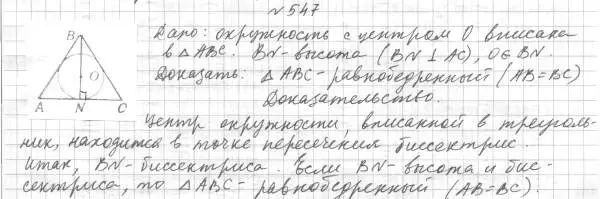 №547
Дано: окружность с центром O вписана
в △ABC. BN - высота (BN ⊥ AC), O ∈ BN.
Доказать: △ABC - равнобедренный (AB=BC)
Доказательство.
B
O
A N C
Центр окружности, вписанной в треуголь-
ник, находится в точке пересечения биссектрис.
Итак, BN - биссектриса. Если BN - высота и бис-
сектриса, то △ABC - равнобедренный (AB=BC).